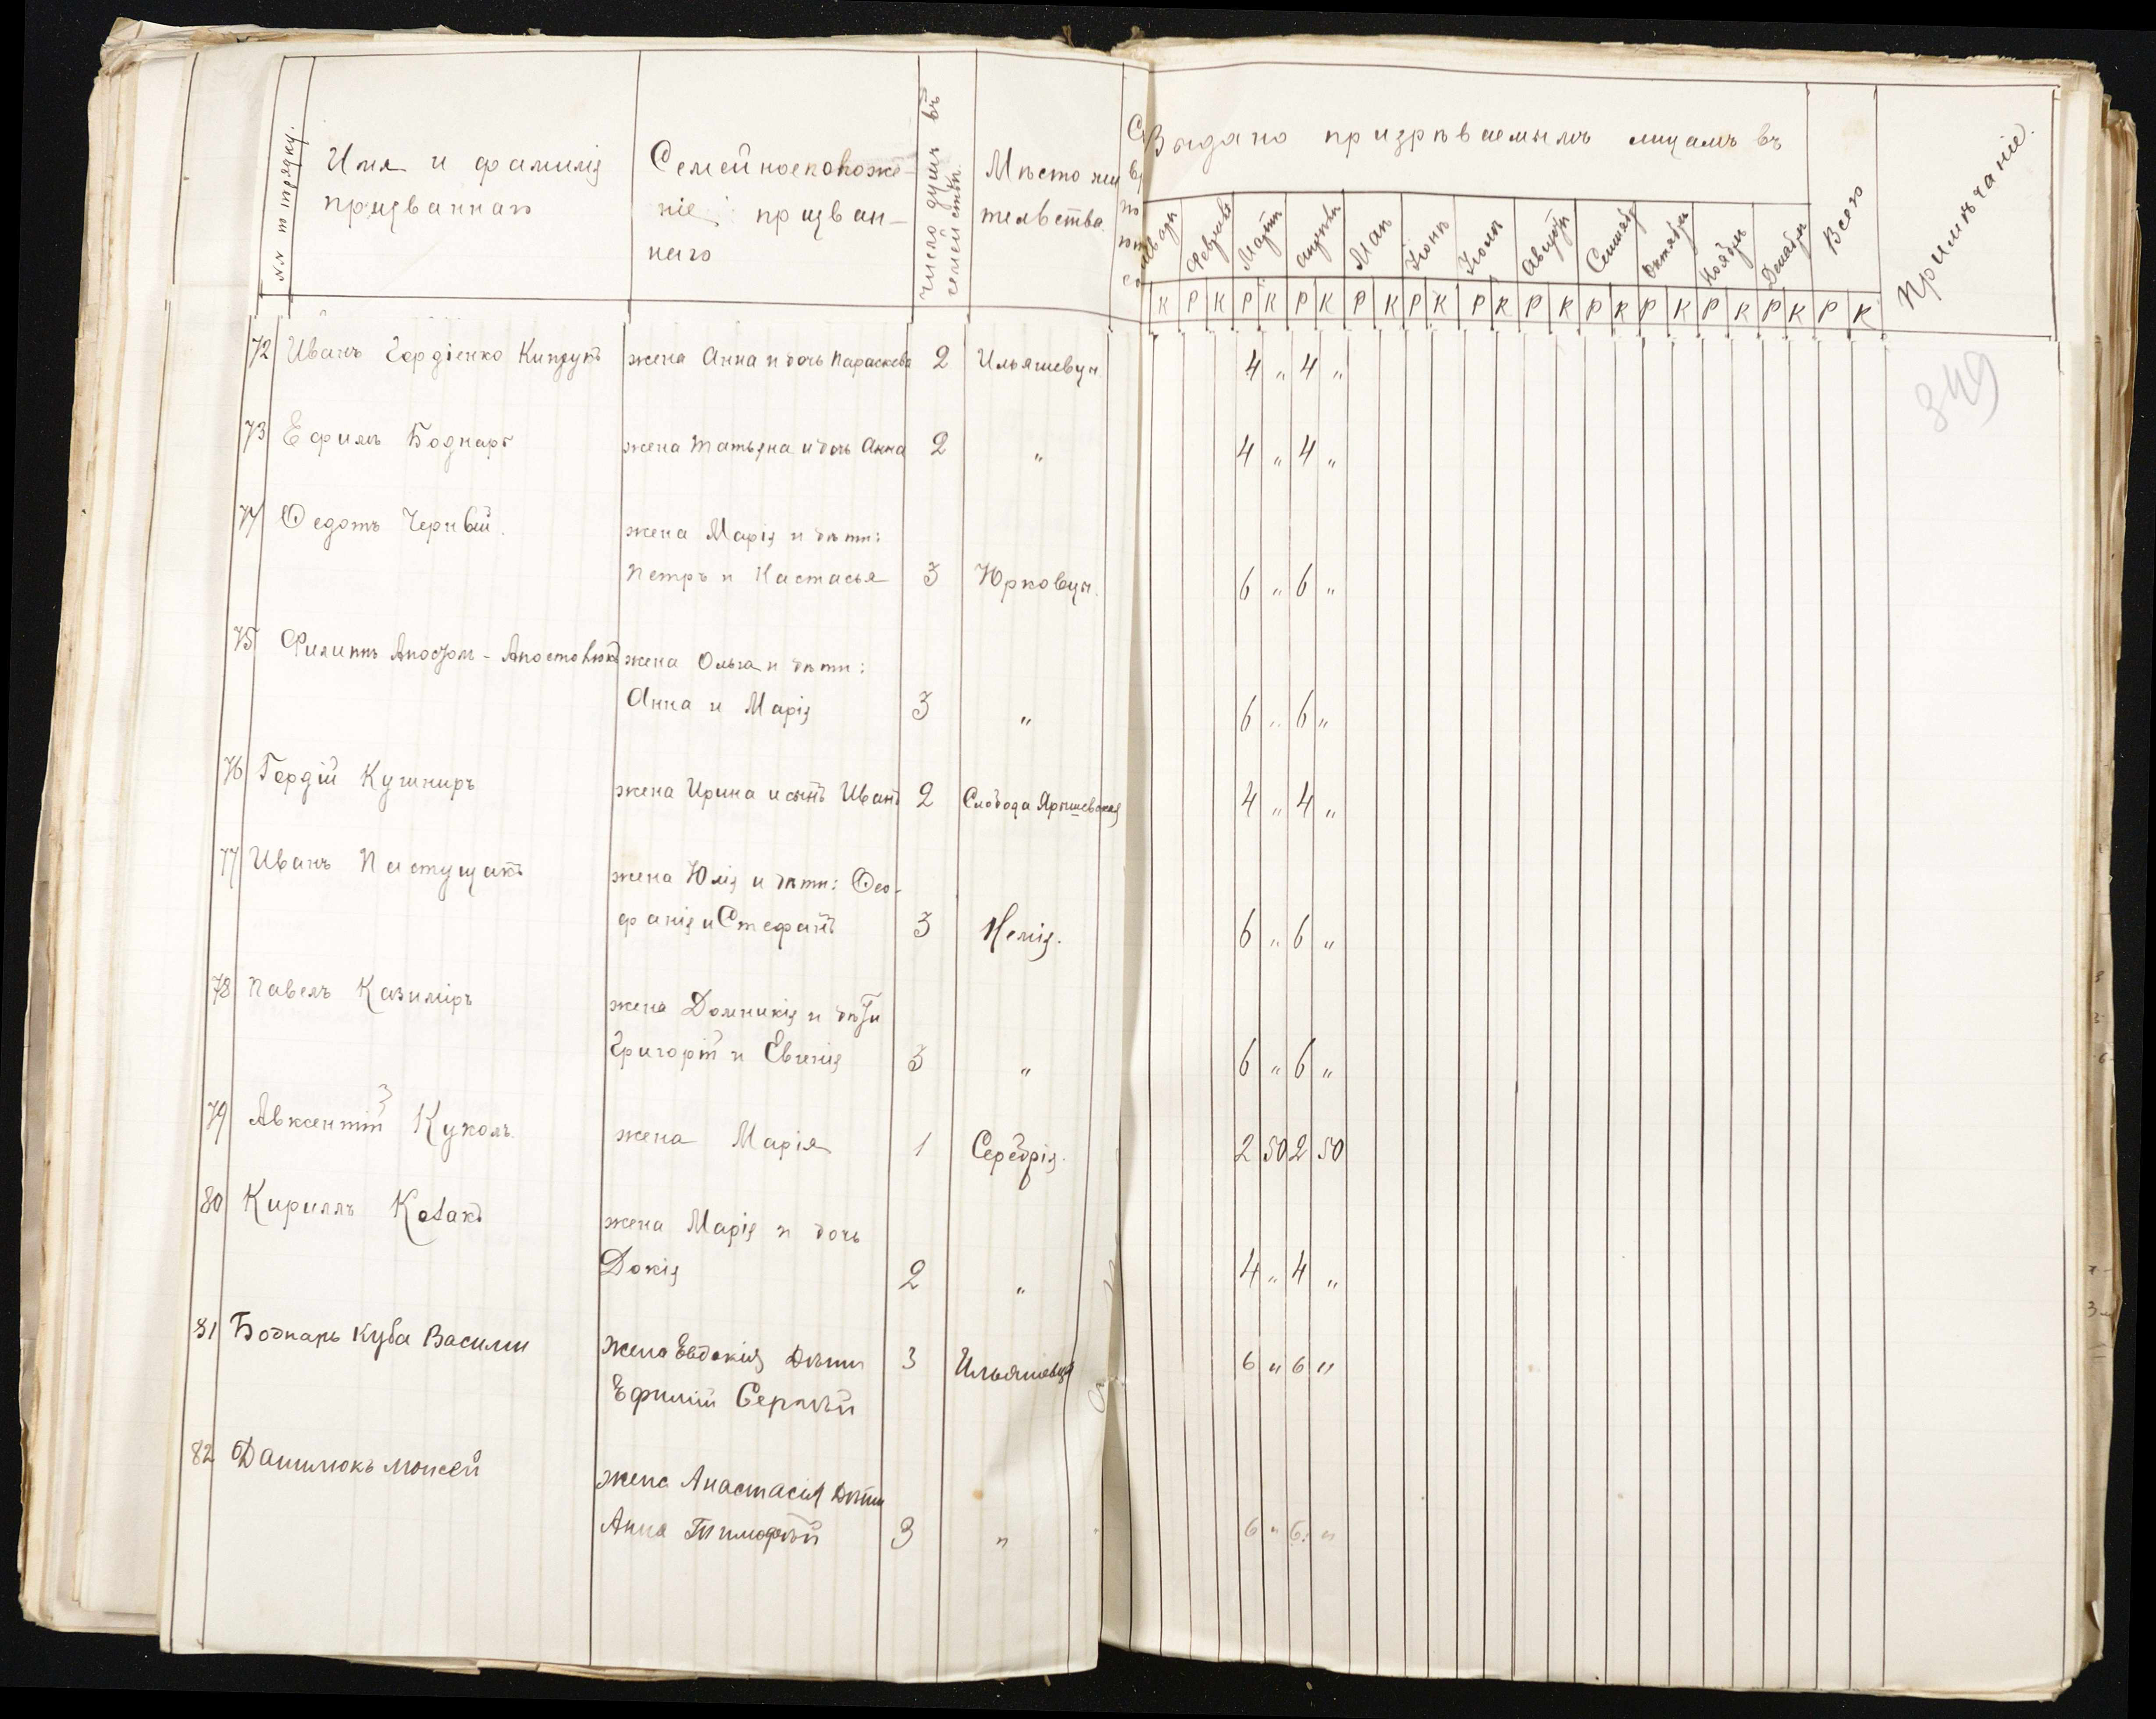 NN по порядку.
Имя и фамилія
призваннаго
Семейное положе-
ніе призван-
наго
Число душъ въ
семействѣ.
Мѣсто жи
тельства
Выдано призрѣваемымъ лицамъ въ
Февраль
Мартъ
Апрѣль
Май
Іюнь
Іюль
Августъ
Сентябрь
Октябрь
Ноябрь
Декабрь
Всего
Примѣчаніе.
К Р К Р К Р К Р К Р К Р К Р К Р К Р К Р К Р К Р К
349
72 Иванъ Гордіенко жена Анна и дочь Параскева 2 Ильяшевцы. 4 " 4 "
73 Ефимъ Боднаръ жена Татьяна и дочь Анна 2 " 4 " 4 "
74 Ѳедотъ Черный. жена Марія и дѣти:
Петръ и Настасья 3 Юрковцы. 6 " 6 "
75 Филиппъ Апостол-Апостолюкъ жена Ольга и дѣти:
Анна и Марія 3 " 6 " 6 "
76 Гордій Кушниръ жена Ирина и сынъ Иванъ 2 Слобода Ярышевская 4 " 4 "
77 Иванъ Пастущакъ жена Юлія и дѣти: Ѳео-
фанія и Стефанъ 3 Немія. 6 " 6 "
78 Павелъ Казиміръ жена Домникія и дѣти
Григорій и Евгенія 3 " 6 " 6 "
79 Авксентій Куколь. жена Марія 1 Серебрія. 2 50 2 50
80 Кириллъ жена Марія и дочь
Докія 2 " 4 " 4 "
81 Боднарь Куба Василий жена Евдокія дѣти 3 Ильяшевцы 6 " 6 "
Ефимій Сергѣй
82 Данилюкъ Моисей жена Анастасія дѣти
Анна Тимофѣй 3 " 6 " 6 "